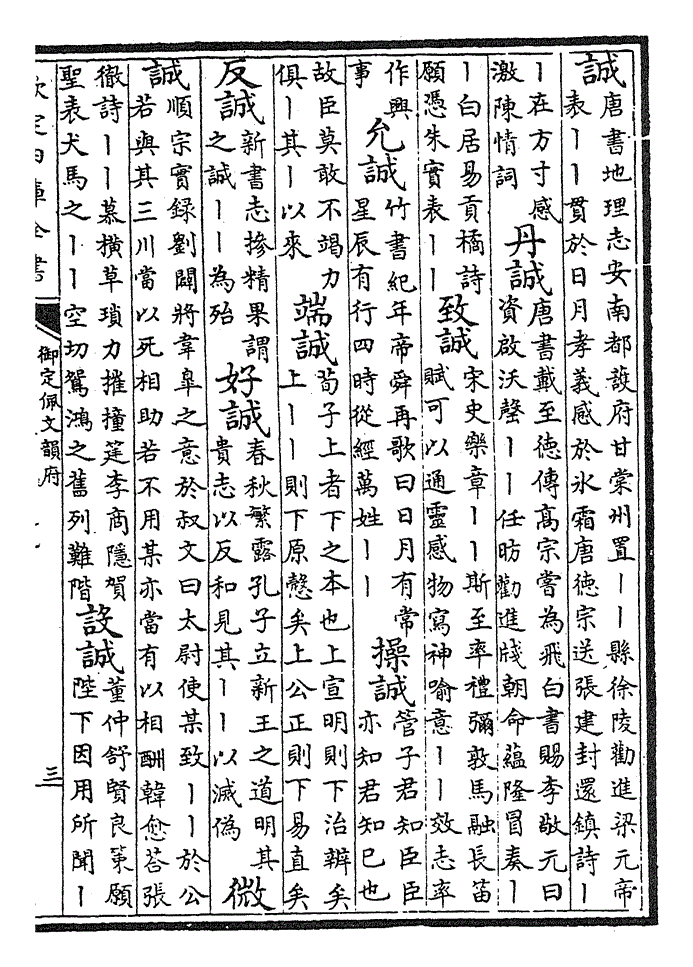 誠唐書地理志安南都護府甘棠州置〡〡縣徐陵勸進梁元帝
表〡〡貫於日月孝義感於氷霜唐德宗送張建封還鎮詩〡
〡在方寸感
激陳情詞
丹誠唐書戴至德傳髙宗嘗為飛白書賜李敬元曰
資啟沃罄〡〡任昉勸進牋朝命藴隆冒奏〡
〡白居易貢橘詩
願憑朱實表〡〡
致誠宋史樂章〡〡斯至率禮彌敦馬融長笛
賦可以通靈感物寫神喻意〡〡效志率
作興
事
允誠竹書紀年帝舜再歌曰日月有常
星辰有行四時從經萬姓〡〡
操誠管子君知臣臣
亦知君知已也
故臣莫敢不竭力
俱〡其〡以來
端誠荀子上者下之本也上宣明則下治辨矣
上〡〡則下原慤矣上公正則下易直矣
反誠新書志摻精果謂
之誠〡〡為殆
好誠春秋繁露孔子立新王之道明其
貴志以反和見其〡〡以滅偽
微
誠順宗實録劉闢將韋皐之意於叔文曰太尉使某致〡〡於公
若與其三川當以死相助若不用某亦當有以相酬韓愈荅張
徹詩〡〡慕横草瑣力摧撞筳李商隱賀
聖表犬馬之〡〡空切鴛鴻之舊列難階
設誠董仲舒賢良策願
陛下因用所聞〡
欽定四庫全書
御定佩文韻府
三